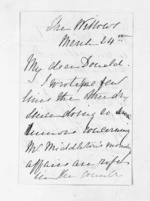 The Willows
March 24th
My dear Donald.
I wrote you a few
lines the other day
rumours concerning
Mr Middleton's money
affairs are rife
in the